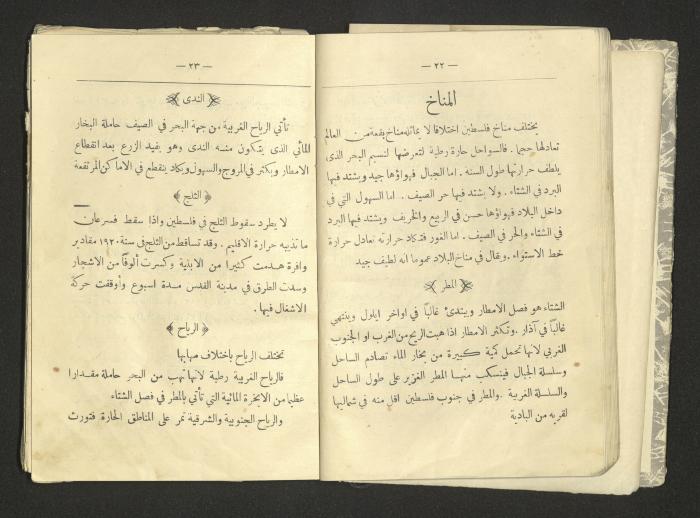 — ٢٢ —
المناخ
يختلف مناخ فلسطين اختلافا لا يماثله مناخ بقعة من العالم
تعادلها حجما . فالسواحل حارة رطبة لتعرضها لنسيم البحر الذي
يلطف حرارتها طول السنة . اما الجبال فهواؤها جيد ويشتد فيها
البرد في الشتاء . ولا يشتد فيها حر الصيف . اما السهول التي في
داخل البلاد فهواؤها حسن في الربيع والخريف ويشتد فيها البرد
في الشتاء والحر في الصيف . اما الغور فتكاد حرارته تعادل حرارة
خط الاستواء . ويقال في مناخ البلاد عموما انه لطيف جيد
﴿ المطر ﴾
الشتاء هو فصل الامطار ويبتدئ غالبًا في اواخر ايلول وينتهي
غالبًا في آذار . وتكثر الامطار اذا هبت الريح من الغرب او الجنوب
الغربي لانها تحمل كمية كبيرة من بخار الماء تصادم الساحل
وسلسلة الجبال فينسكب منها المطر الغزير على طول الساحل
والسلسلة الغربية . والمطر في جنوب فلسطين اقل منه في شماليها
لقربه من البادية
— ٢٣ —
﴿ الندى ﴾
تأتي الرياح الغربية من جهة البحر في الصيف حاملة البخار
المائي الذي يتكون منه الندى وهو يفيد الزرع بعد انقطاع
الامطار ويكثر في المروج والسهول ويكاد ينقطع في الاماكن المرتفعة
﴿ الثلج ﴾
لا يطرد سقوط الثلج في فلسطين واذا سقط فسرعان
ما تذيبه حرارة الاقليم . وقد تساقط من الثلج في سنة ١٩٢٠ مقادير
وافرة هدمت كثيرا من الابنية وكسرت ألوفًا من الاشجار
وسدت الطرق في مدينة القدس مدة اسبوع وأوقفت حركة
الاشغال فيها .
﴿ الرياح ﴾
تختلف الرياح باختلاف مهابها
فالرياح الغربية رطبة لانها تهب من البحر حاملة مقدارا
عظيما من الابخرة المائية التي تأتي بالمطر في فصل الشتاء
والرياح الجنوبية والشرقية تمر على المناطق الحارة فتورث